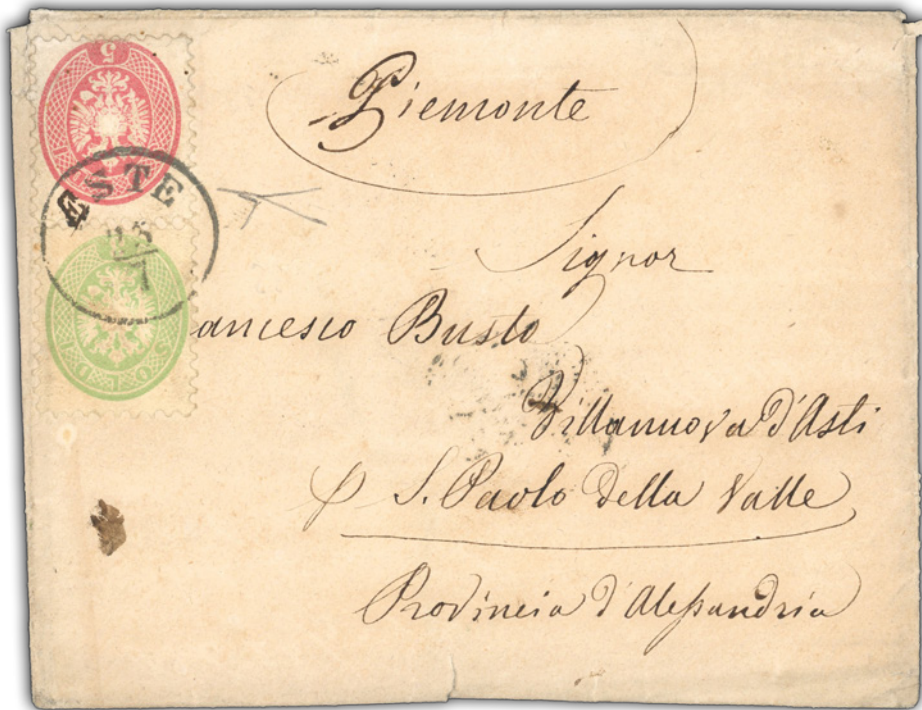 5
SOLDI
ESTE
7
Piemonte
Signor
ancesco Busto
Villannova d'Asti
p S. Paolo Della Valle
Provincia d'Alessandria